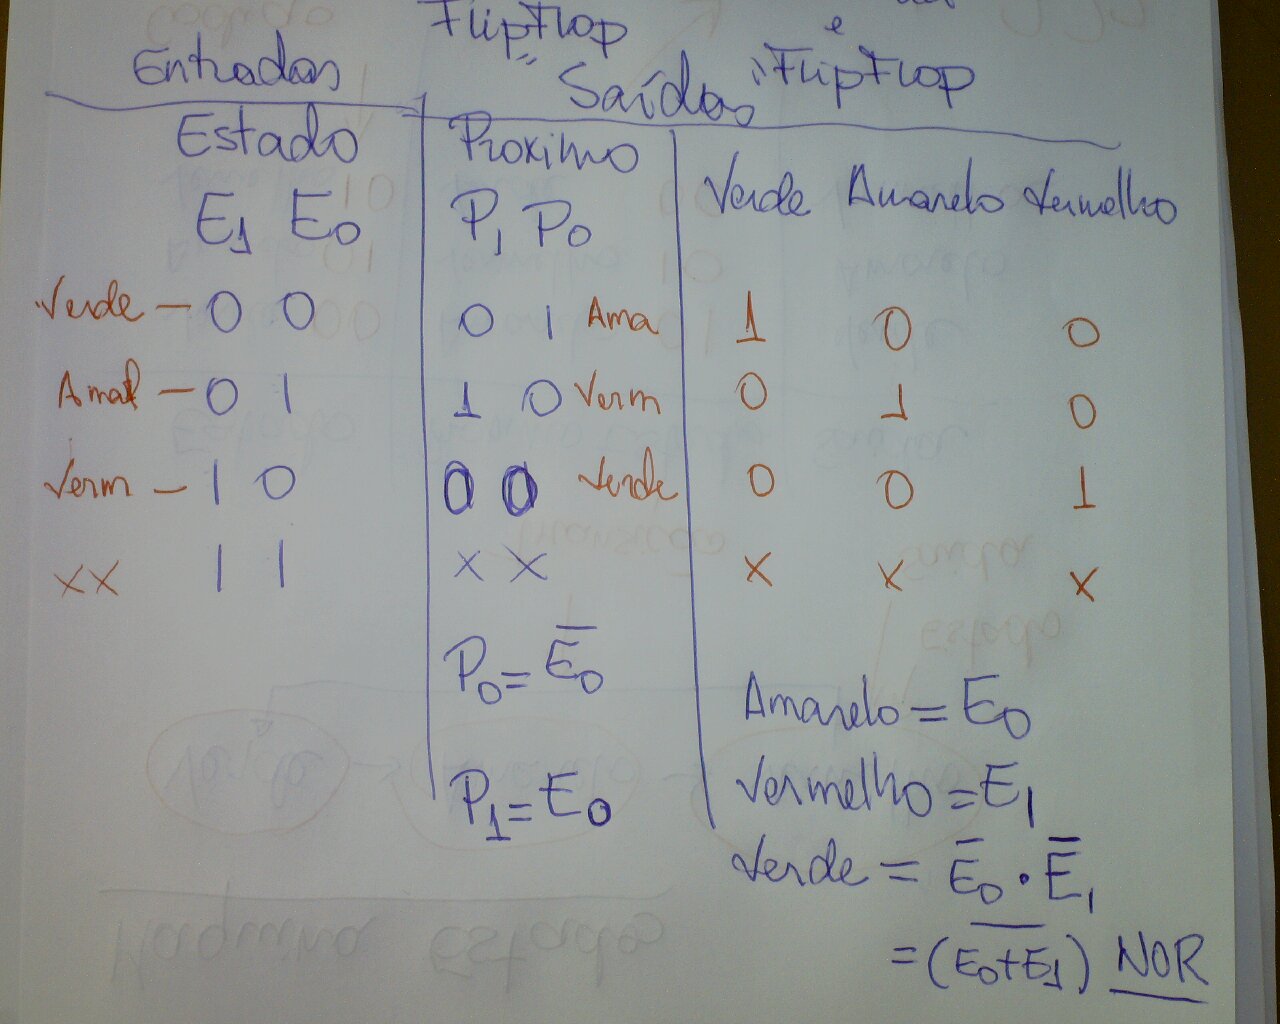 FlipFlop e
Entradas " Saídas "FlipFlop
Estado Proximo
E1 E0 P1 P0 Verde Amarelo Vermelho
Verde - 0 0 0 1 Ama 1 0 0
Amar - 0 1 1 0 Verm 0 1 0
Verm - 1 0 0 0 Verde 0 0 1
XX 1 1 X X X X X
P0 = E̅0
Amarelo = E0
P1 = E0 Vermelho = E1
Verde = E̅0 · E̅1
= (E̅0̅+̅E̅1̅) NOR